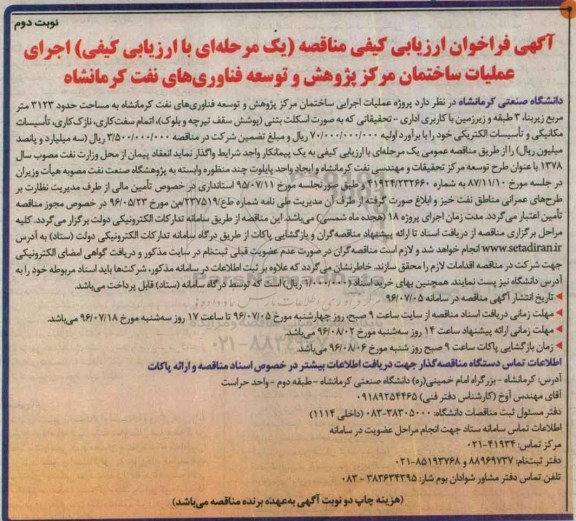 نوبت دوم
آگهی فراخوان ارزیابی کیفی مناقصه (یک مرحله‌ای با ارزیابی کیفی) اجرای
عملیات ساختمان مرکز پژوهش و توسعه فناوری‌های نفت کرمانشاه
دانشگاه صنعتی کرمانشاه در نظر دارد پروژه عملیات اجرایی ساختمان مرکز پژوهش و توسعه فناوری‌های نفت کرمانشاه به مساحت حدود ۳۱۲۳ متر
مربع زیربنا، ۳ طبقه و زیرزمین با کاربری اداری - تحقیقاتی که به صورت اسکلت بتنی (پوشش سقف تیرچه و بلوک)، اتمام سفت‌کاری، نازک‌کاری، تأسیسات
مکانیکی و تأسیسات الکتریکی خود را با برآورد اولیه ۷۰/۰۰۰/۰۰۰/۰۰۰ ریال و مبلغ تضمین شرکت در مناقصه ۳/۵۰۰/۰۰۰/۰۰۰ ریال (سه میلیارد و پانصد
میلیون ریال) را از طریق مناقصه عمومی یک مرحله‌ای با ارزیابی کیفی به یک پیمانکار واجد شرایط واگذار نماید انعقاد پیمان از محل وزارت نفت مصوب سال
۱۳۷۸ با عنوان طرح توسعه مرکز تحقیقات و مهندسی نفت کرمانشاه و ایجاد واحد پایلوت چند منظوره وابسته به پژوهشگاه صنعت نفت مصوبه هیأت وزیران
در جلسه مورخ ۸۷/۱۱/۱۰ به شماره ۱۹۲۴/۲۳۲۶۶۰ طبق صورتجلسه مورخ ۹۵/۰۷/۱۱ استانداری در خصوص تأمین مالی از طرف مدیریت نظارت بر
طرح‌های عمرانی مناطق نفت خیز و ابلاغ صورت گرفته از طرف آن مدیریت طی نامه شماره طع/۲۳۷۵۱۹من مورخ ۹۶/۰۵/۲۳ در خصوص مجوز مناقصه
تأمین اعتبار می‌گردد. مدت زمان اجرای پروژه ۱۸ (هجده ماه شمسی) می‌باشد. این مناقصه از طریق سامانه تدارکات الکترونیکی دولت برگزار می‌گردد. کلیه
مراحل برگزاری مناقصه از دریافت اسناد تا ارائه پیشنهاد مناقصه‌گران و بازگشایی پاکات از طریق درگاه سامانه تدارکات الکترونیکی دولت (ستاد) به آدرس
www.setadiran.ir انجام خواهد شد و لازم است مناقصه‌گران در صورت عدم عضویت قبلی ثبت‌نام در سایت مذکور و دریافت گواهی امضای الکترونیکی
جهت شرکت در مناقصه اقدامات لازم را محقق سازند. خاطرنشان می‌گردد که علاوه بر ثبت اطلاعات در سامانه مذکور، شرکت‌ها باید اسناد مربوطه خود را به
آدرس دانشگاه نیز پست نمایند. همچنین بهای خرید اسناد (۱/۰۰۰/۰۰۰ ریال) است که توسط درگاه سامانه (ستاد) قابل پرداخت می‌باشد.
◄ تاریخ انتشار آگهی مناقصه در سامانه ۹۶/۰۷/۰۵
◄ مهلت زمانی دریافت اسناد مناقصه از سایت ساعت ۹ صبح، روز چهارشنبه مورخ ۹۶/۰۷/۰۵ تا ساعت ۱۷ روز سه‌شنبه مورخ ۹۶/۰۷/۱۸ می‌باشد.
◄ مهلت زمانی ارائه پیشنهاد ساعت ۱۴ روز سه‌شنبه مورخ ۹۶/۰۸/۰۲ می‌باشد.
◄ زمان بازگشایی پاکات ساعت ۹ صبح روز شنبه مورخ ۹۶/۰۸/۰۶ می‌باشد.
اطلاعات تماس دستگاه مناقصه‌گذار جهت دریافت اطلاعات بیشتر در خصوص اسناد مناقصه و ارائه پاکات
آدرس: کرمانشاه - بزرگراه امام خمینی(ره) دانشگاه صنعتی کرمانشاه - طبقه دوم - واحد حراست
آقای مهندس آوخ (کارشناس دفتر فنی) ۰۹۱۸۹۲۵۴۴۶۵
دفتر مسئول ثبت مناقصات دانشگاه: ۳۸۳۰۵۰۰۰-۰۸۳ (داخلی ۱۱۱۴)
اطلاعات تماس سامانه ستاد جهت انجام مراحل عضویت در سامانه
مرکز تماس: ۴۱۹۳۴-۰۲۱
دفتر ثبت‌نام: ۸۸۹۶۹۷۳۷ و ۸۵۱۹۳۷۶۸-۰۲۱
تلفن تماس دفتر مشاور شوادان بوم شار: ۳۸۳۶۳۴۳۹۵ - ۰۸۳
(هزینه چاپ دو نوبت آگهی به‌عهده برنده مناقصه می‌باشد)